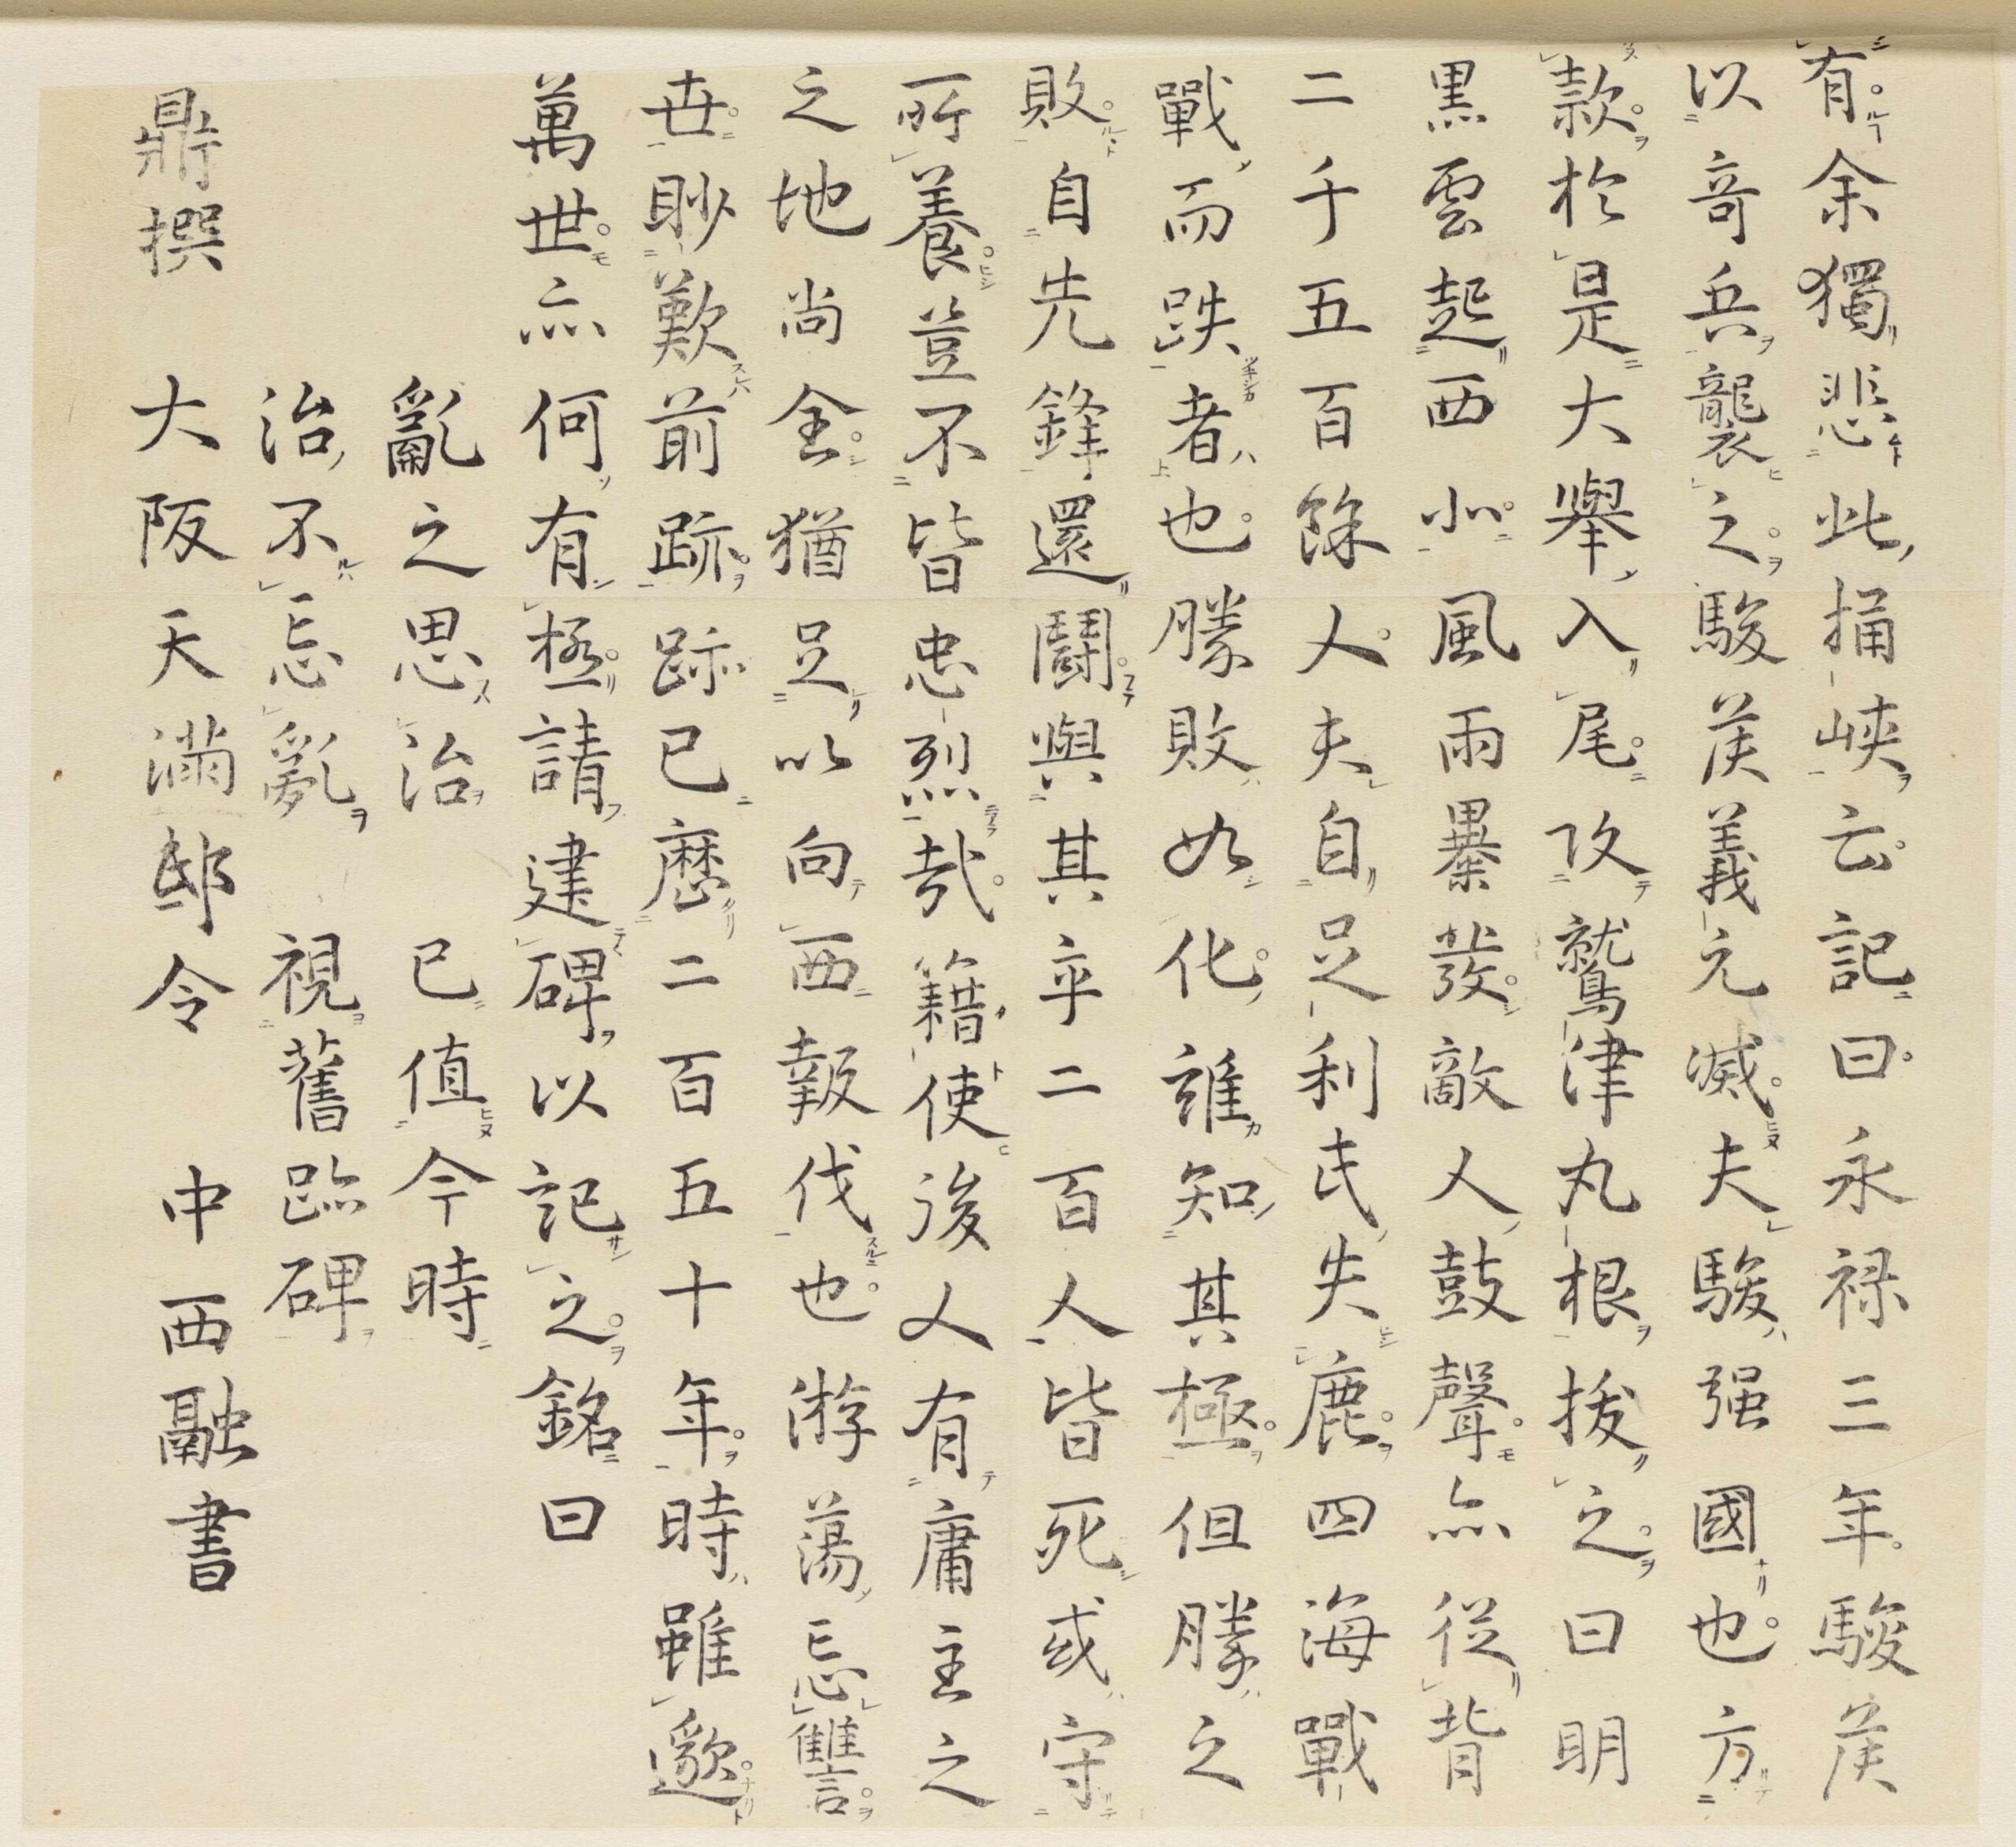 有余獨悲此桶峽云記曰永禄三年駿侯
以竒兵襲之駿侯義元滅夫駿强國也方
款於是大舉入尾攻鷲津丸根拔之曰明
黒雲起西北風雨暴發敵人鼓聲亦從背
二千五百餘人夫自足利氏失鹿四海戰
戰而跌者也勝敗如化誰知其極但勝之
敗自先鋒還鬪與其卒二百人皆死或守
所養豈不皆忠烈哉籍使後人有庸主之
之地尚全猶足以向西報伐也游蕩忘讐
世眇歎前跡跡已歴二百五十年時雖邈
萬世亦何有極請建碑以記之銘曰
亂之思治　已值今時
治不忘亂　視舊跡碑
鼎撰　大阪天滿邸令　中西融書